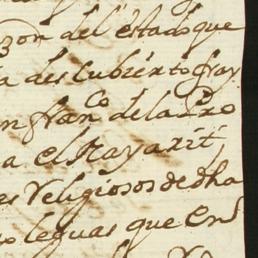 zon del estado que
a descubierto fray
n fran co de la Pro
a el Nayarit,
es Religiosos de dha
leguas que en